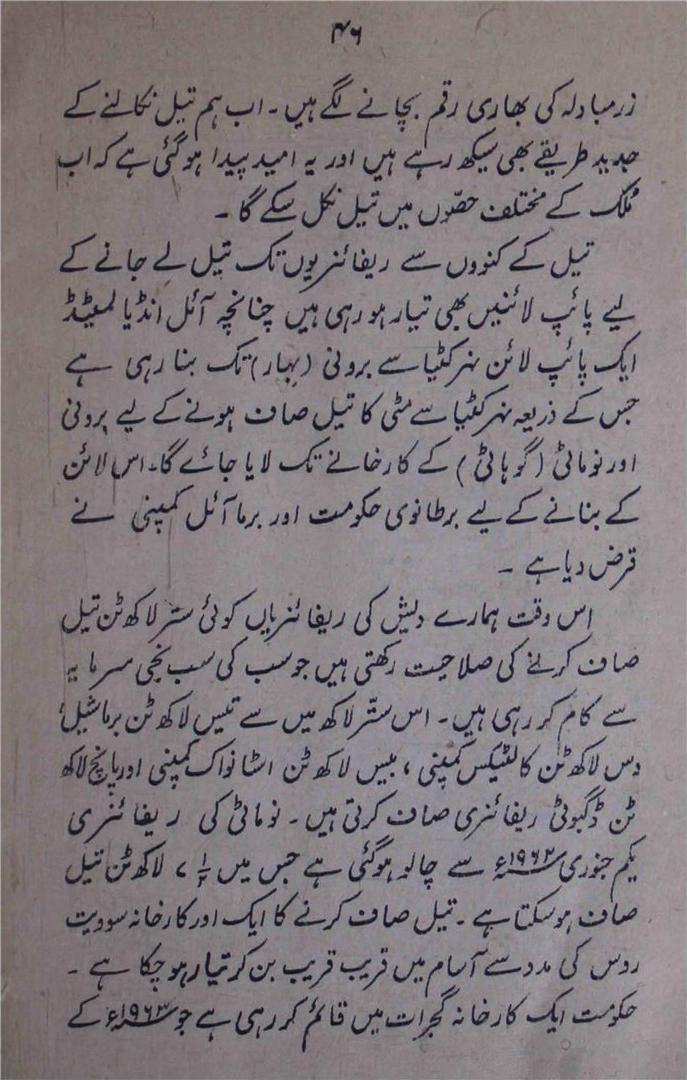 ۴۶
زرمبادلہ کی بھاری رقم بچانے لگے ہیں ۔ اب ہم تیل نکالنے کے
جدید طریقے بھی سیکھ رہے ہیں اور یہ امید پیدا ہوگئی ہے کہ اب
ملک کے مختلف حصّوں میں تیل نکل سکے گا ۔
تیل کے کنووں سے ریفائنریوں تک تیل لے جانے کے
لیے پائپ لائنیں بھی تیار ہو رہی ہیں چنانچہ آئل انڈیا لمیٹیڈ
ایک پائپ لائن نہرکٹیا سے برونی (بہار) تک بنا رہی ہے
جس کے ذریعہ نہرکٹیا سے مٹی کا تیل صاف ہونے کے لیے برونی
اور نوماٹی (گوہاٹی) کے کارخانے تک لایا جائے گا۔ اس لائن
کے بنانے کے لیے برطانوی حکومت اور برما آئل کمپنی نے
قرض دیا ہے ۔
اس وقت ہمارے دیش کی ریفائنریاں کوئی ستّر لاکھ ٹن تیل
صاف کرنے کی صلاحیت رکھتی ہیں جو سب کی سب نجی سرمایہ
سے کام کر رہی ہیں ۔ اس ستّر لاکھ میں سے تیس لاکھ ٹن برماشیل،
دس لاکھ ٹن کالٹیکس کمپنی ، بیس لاکھ ٹن اسٹانواک کمپنی اور پانچ لاکھ
ٹن ڈگبوئی ریفائنری صاف کرتی ہیں ۔ نوماٹی کی ریفائنری
یکم جنوری ۱۹۶۲ء سے چالو ہوگئی ہے جس میں ۷ ۱/۲ لاکھ ٹن تیل
صاف ہوسکتا ہے ۔ تیل صاف کرنے کا ایک اور کارخانہ سوویت
روس کی مدد سے آسام میں قریب قریب بن کر تیار ہو چکا ہے ۔
حکومت ایک کارخانہ گجرات میں قائم کر رہی ہے جو ۱۹۶۳ء کے